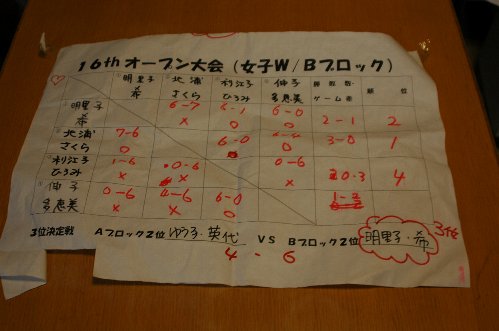 16thオープン大会(女子W/Bブロック)
明里子 希 北浦 さくら 利江子 ひろみ 伸子 多恵美 勝敗数 ゲーム差 順位
明里子 希 6-7 × 6-1 ○ 6-0 ○ 2-1 2
北浦 さくら 7-6 ○ 6-0 ○ ○ 3-0 1
利江子 ひろみ 1-6 × 0-6 × 0-6 × 0-3 4
伸子 多恵美 0-6 × 4-6 × 6-0 ○ 1-2
3位決定戦 Aブロック2位 ゆう子・英代 VS Bブロック2位 明里子・希 3位
4-6